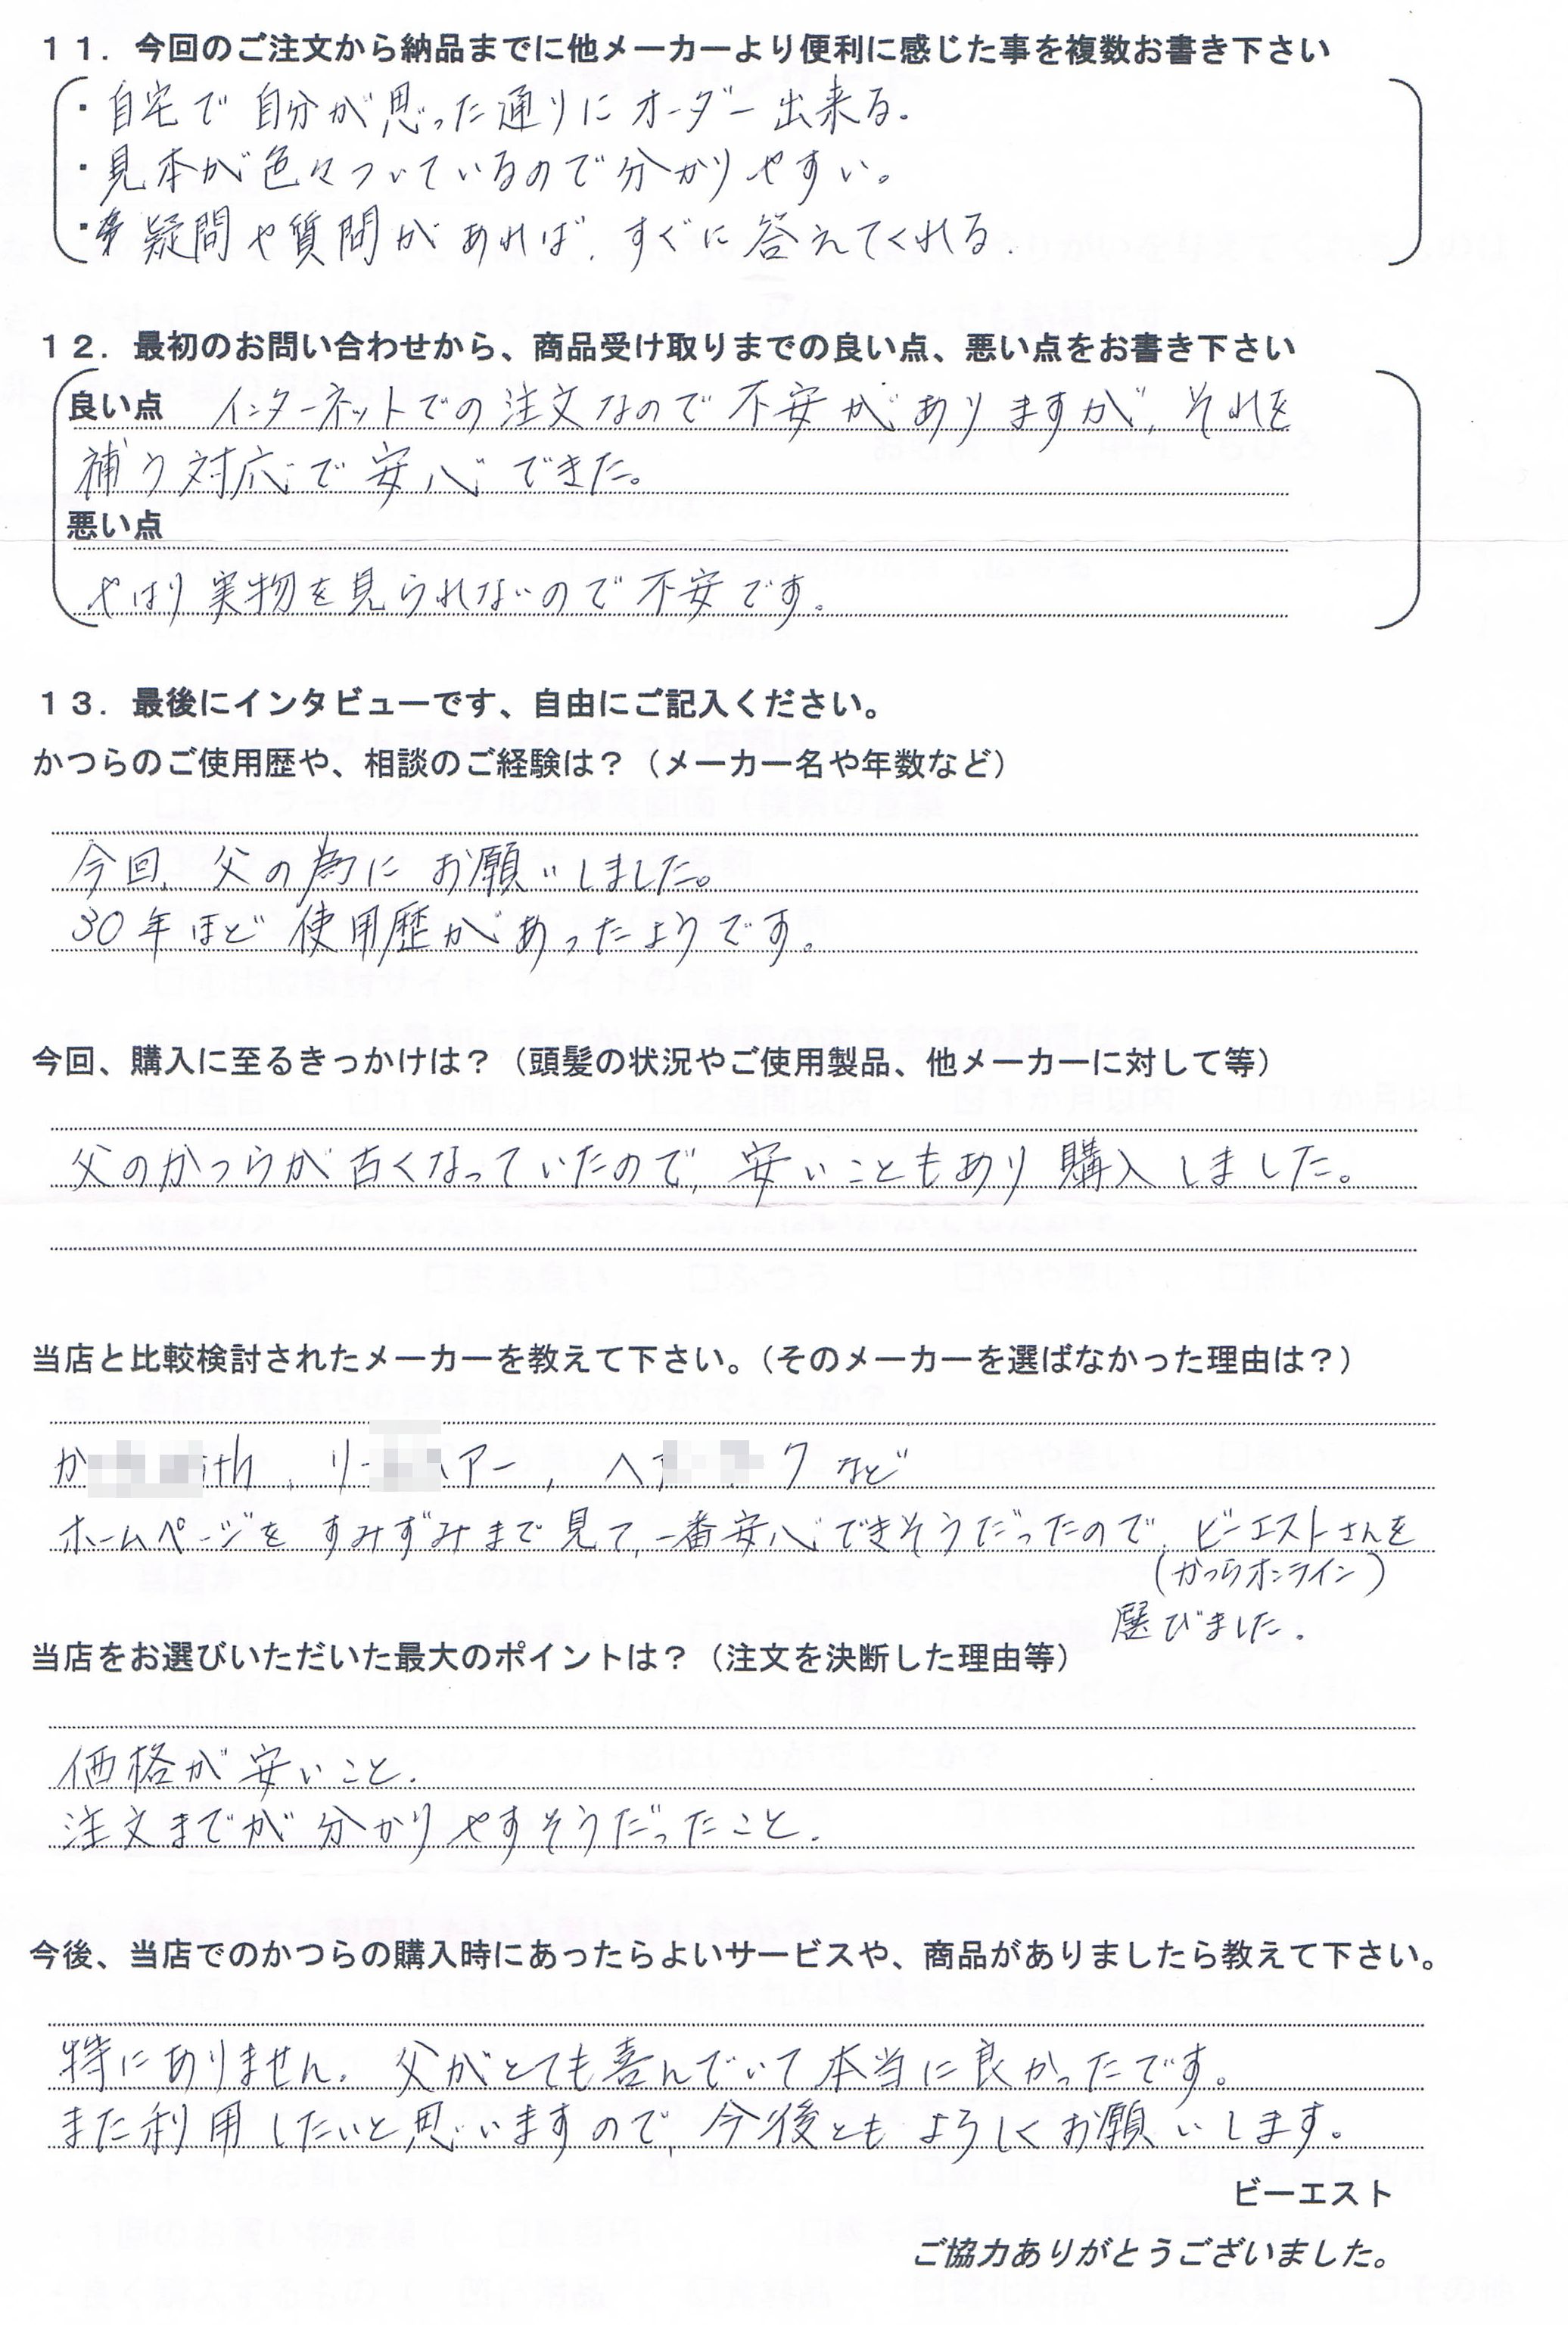 １１．今回のご注文から納品までに他メーカーより便利に感じた事を複数お書き下さい
・自宅で自分が思った通りにオーダー出来る.
・見本が色々ついているので分かりやすい。
・疑問や質問があれば、すぐに答えてくれる.
１２．最初のお問い合わせから、商品受け取りまでの良い点、悪い点をお書き下さい
良い点 インターネットでの注文なので不安がありますが、それを
補う対応で安心できた。
悪い点
やはり実物を見られないので不安です。
１３．最後にインタビューです、自由にご記入ください。
かつらのご使用歴や、相談のご経験は？（メーカー名や年数など）
今回、父の為にお願いしました。
30年ほど使用歴があったようです。
今回、購入に至るきっかけは？（頭髪の状況やご使用製品、他メーカーに対して等）
父のかつらが古くなっていたので、安いこともあり購入しました。
当店と比較検討されたメーカーを教えて下さい。（そのメーカーを選ばなかった理由は？）
など
ホームページをすみずみまで見て、一番安心できそうだったので、ビーエストさんを
（かつらオンライン）
選びました.
当店をお選びいただいた最大のポイントは？（注文を決断した理由等）
価格が安いこと.
注文までが分かりやすそうだったこと.
今後、当店でのかつらの購入時にあったらよいサービスや、商品がありましたら教えて下さい。
特にありません. 父がとても喜んでいて本当に良かったです。
また利用したいと思いますので、今後ともよろしくお願いします。
ビーエスト
ご協力ありがとうございました。